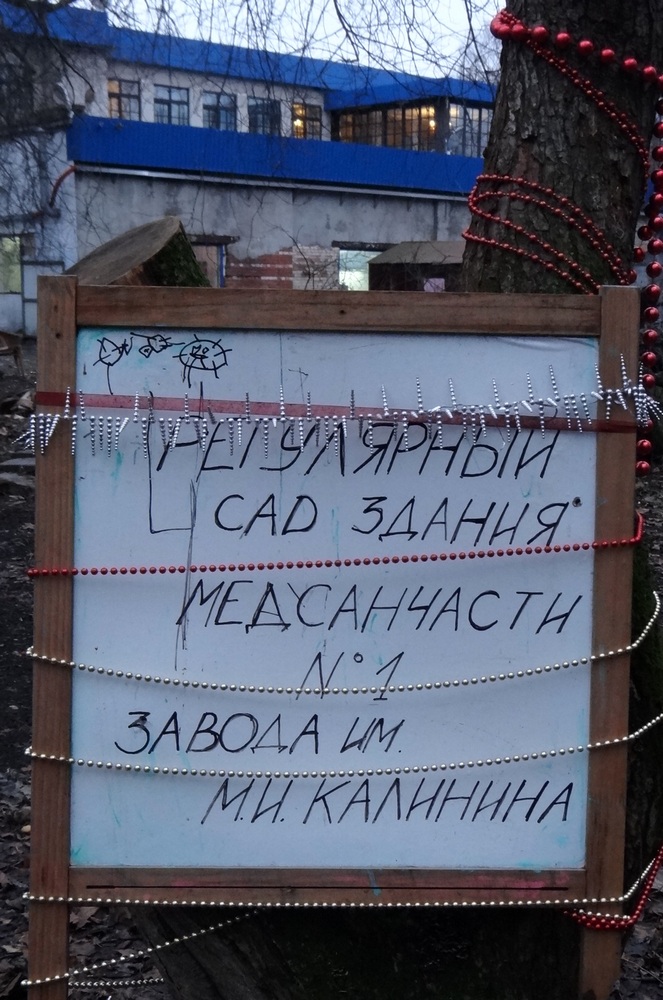 РЕГУЛЯРНЫЙ
САД ЗДАНИЯ
МЕДСАНЧАСТИ
N°1
ЗАВОДА ИМ.
М.И. КАЛИНИНА